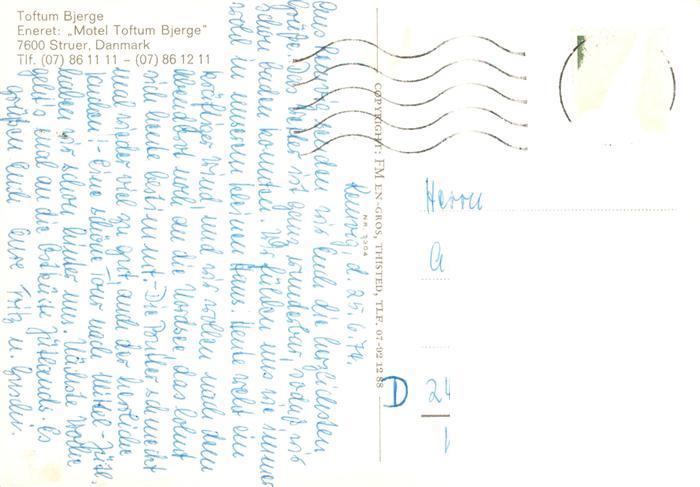 Toftum Bjerge
Eneret: „Motel Toftum Bjerge"
7600 Struer, Danmark
Tlf. (07) 86 11 11 – (07) 86 12 11
d. 25.6.74.
Aus senden wir Euch die herzlichsten
Grüße. Das Wetter ist ganz wunderbar, sodaß wir
schon baden konnten. Wir fühlen uns wie immer
wohl in unserem kleinen Haus. Heute weht ein
kräftiger Wind, und wir wollen nach dem
Abendbrot noch an die Nordsee, das lohnt
sich heute bestimmt. - Die Butter schmeckt
mal wieder viel zu gut, auch der herrliche
Kuchen! - Eine schöne Tour nach Mittel-Jütl.
haben wir schon hinter uns. Nächste Woche
geht's mal an die Ostküste Jütlands. Es
grüßen Euch Eure Fritz u.
COPYRIGHT: FM EN-GROS, THISTED, TLF. 07-92 12 88
NR. 3304
Herrn
A
D 24